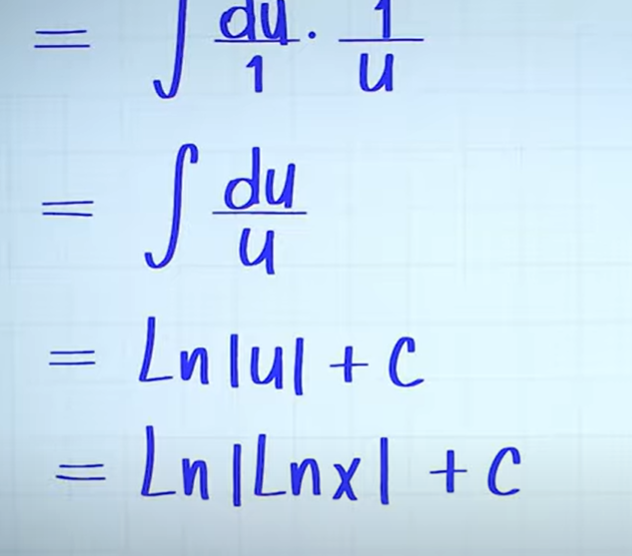 = ∫ du/1 · 1/u
= ∫ du/u
= Ln|u| + C
= Ln|Lnx| + C